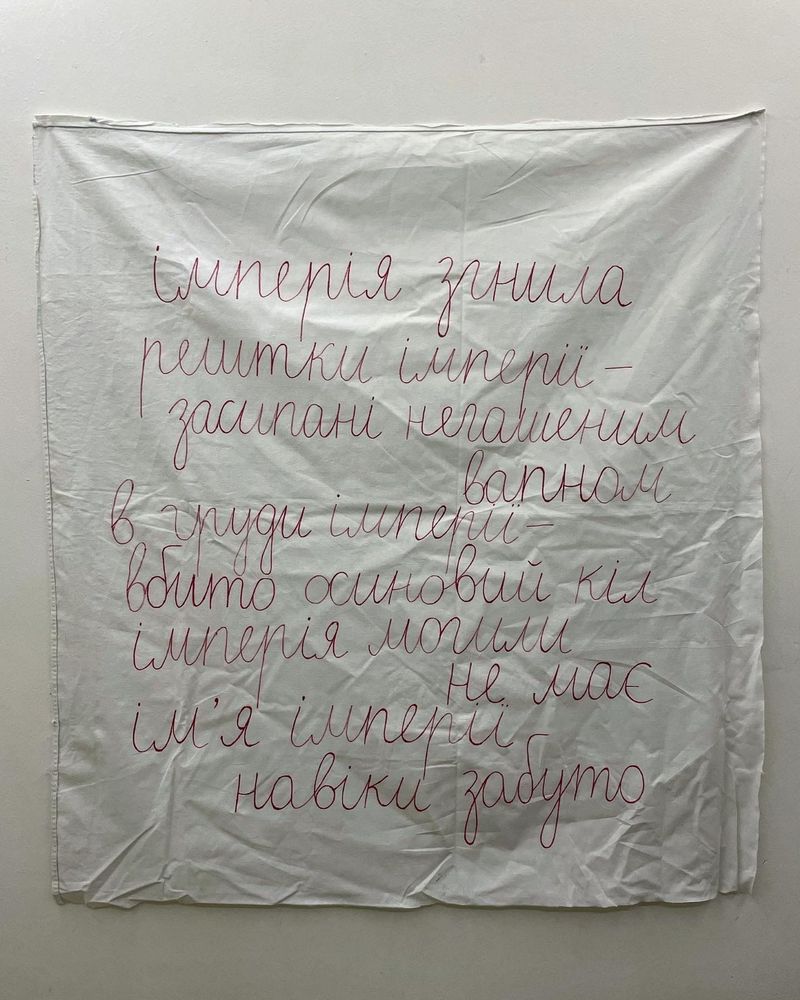 імперія згнила
рештки імперії –
засипані негашеним
вапном
в груди імперії –
вбито осиновий кіл
імперія могили
не має
ім'я імперії
навіки забуто